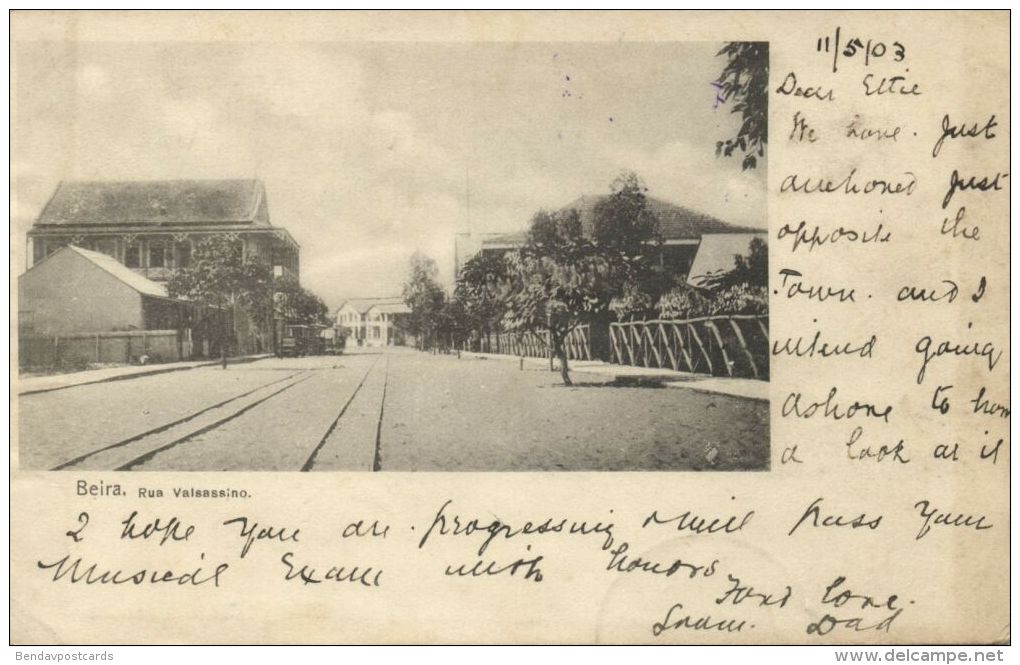 11/5/03
Dear Ettie
We have just
anchored just
opposite the
Town. and I
intend going
ashore to have
a look at it
Beira. Rua Valsassino.
I hope you are progressing & will pass your
Musical Exam with honors
Fond love.
from. Dad
Bendavpostcards
http://www.delcampe.net